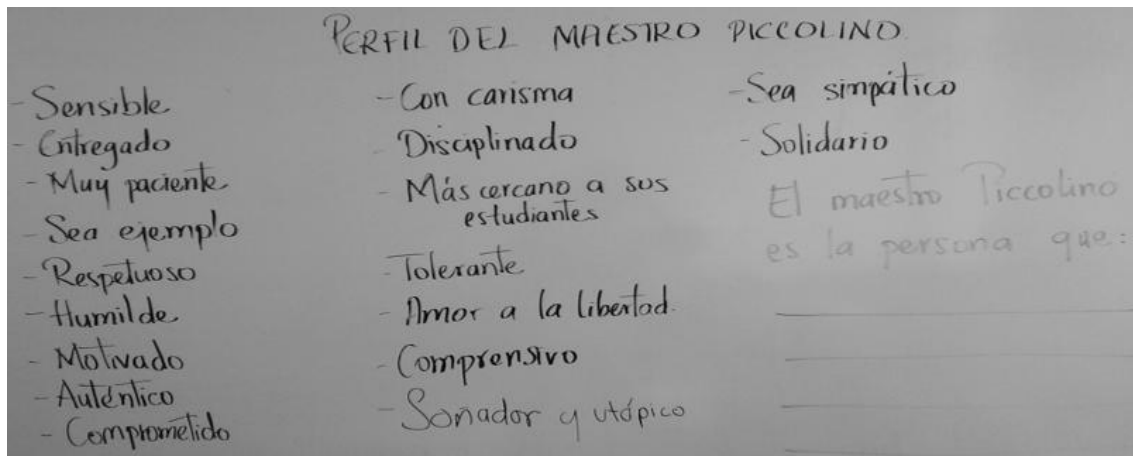 PERFIL DEL MAESTRO PICCOLINO.
- Sensible
- Entregado
- Muy paciente
- Sea ejemplo
- Respetuoso
- Humilde
- Motivado
- Auténtico
- Comprometido
- Con carisma
- Disciplinado
- Más cercano a sus
estudiantes
- Tolerante
- Amor a la libertad.
- Comprensivo
- Soñador y utópico
- Sea simpático
- Solidario
El maestro Piccolino
es la persona que: